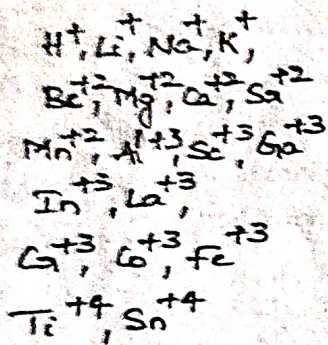 H⁺, Li⁺, Na⁺, K⁺,
Be⁺², Mg⁺², Ca⁺², Sr⁺²
Mn⁺², Al⁺³, Sc⁺³, Ga⁺³
In⁺³, La⁺³,
Cr⁺³, Co⁺³, Fe⁺³
Ti⁺⁴, Sn⁺⁴